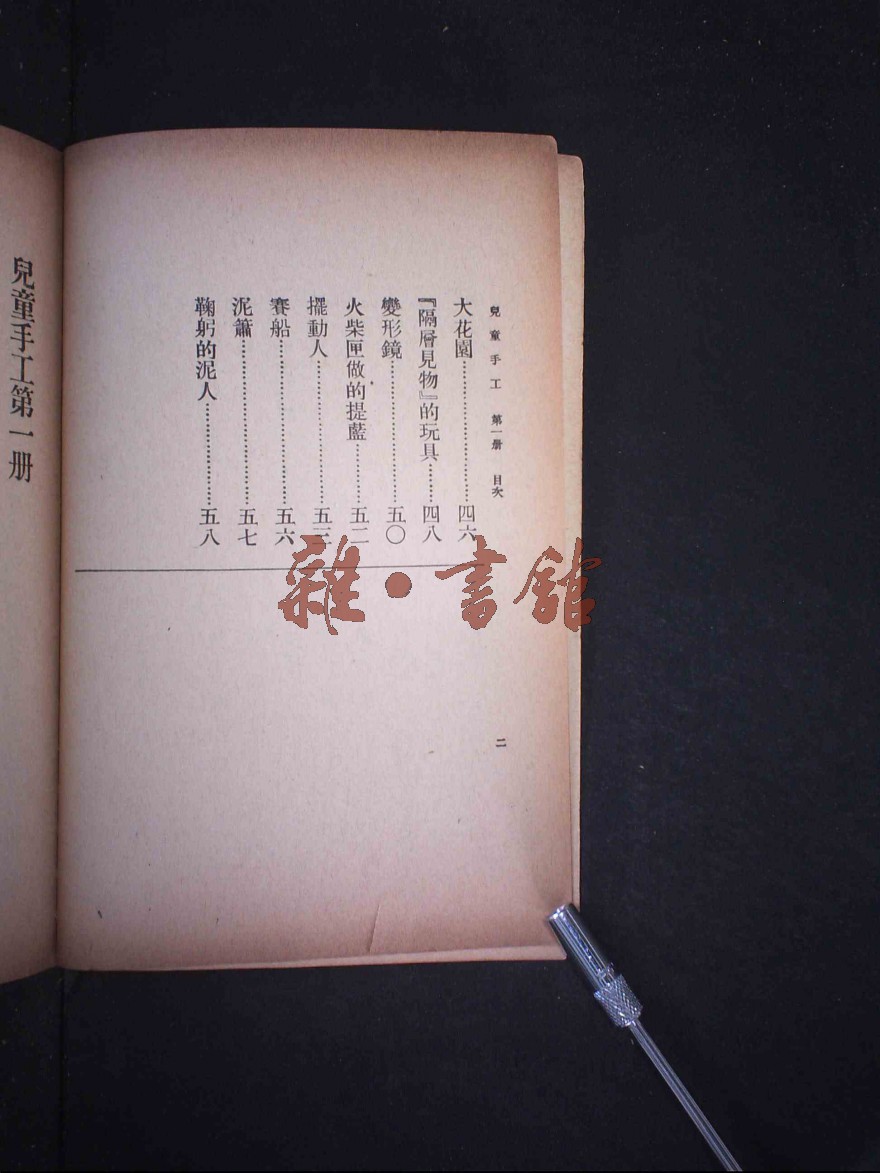 兒童手工 第一册 目次
大花園……………………四六
『隔層見物』的玩具……四八
變形鏡……………………五〇
火柴匣做的提藍…………五二
擺動人……………………五三
賽船………………………五六
泥簫………………………五七
鞠躬的泥人………………五八
二
兒童手工第一册
雜·書館